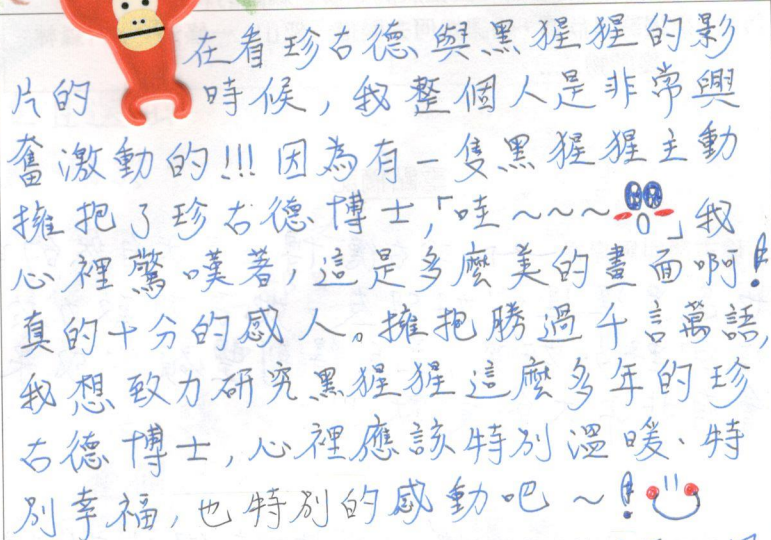 在看珍古德與黑猩猩的影
片的時候，我整個人是非常興
奮激動的!!!因為有一隻黑猩猩主動
擁抱了珍古德博士，「哇～～～」我
心裡驚嘆著，這是多麼美的畫面啊！
真的十分的感人。擁抱勝過千言萬語，
我想致力研究黑猩猩這麼多年的珍
古德博士，心裡應該特別溫暖、特
別幸福，也特別的感動吧～！